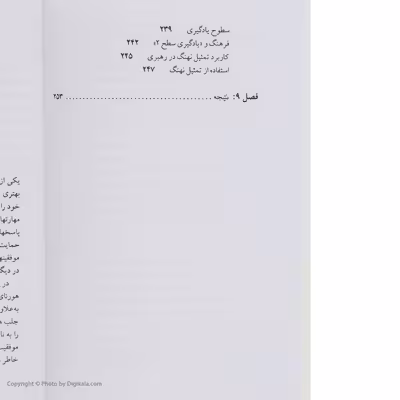 سطوح یادگیری ۲۳۹
فرهنگ و «یادگیری سطح ۲» ۲۴۲
کاربرد تمثیل نهنگ در رهبری ۲۴۵
استفاده از تمثیل نهنگ ۲۴۷
فصل ۹: نتیجه ........................................ ۲۵۳
یکی از
بهتری
خود را
مهارتها
پاسخها
حمایت
موفقیتها
در دیگ
در
هورنای
به‌علاو
جلب ه
را به نا
موفقیت
خاطر
Copyright © Photo by Digikala.com